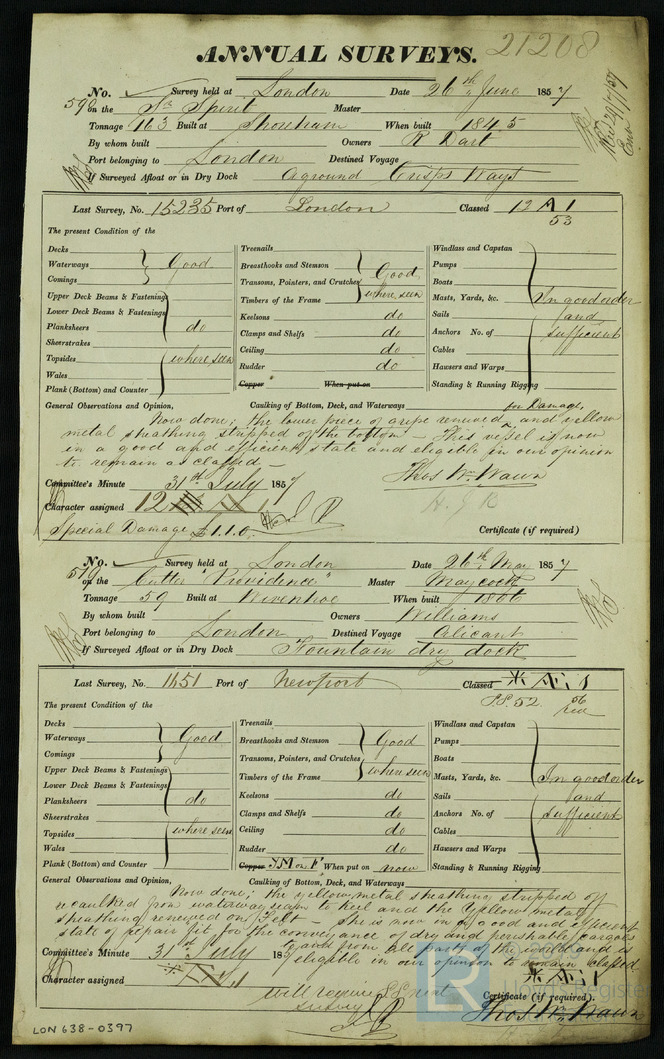 21208
ANNUAL SURVEYS.
No. Survey held at London Date 26th June 1857
590 on the St. Spirit Master
Tonnage 163 Built at Shoreham When built 1845
By whom built Owners R Dart
Port belonging to London Destined Voyage
If Surveyed Afloat or in Dry Dock Aground Crisps Ways
Last Survey, No. 15235 Port of London Classed 12 A 1
53
The present Condition of the
Decks
Waterways Good
Comings
Upper Deck Beams & Fastenings
Lower Deck Beams & Fastenings
Planksheers do
Sheerstrakes
Topsides where seen
Wales
Plank (Bottom) and Counter
Treenails
Breasthooks and Stemson
Transoms, Pointers, and Crutches Good
Timbers of the Frame where seen
Keelsons do
Clamps and Shelfs do
Ceiling do
Rudder do
Copper When put on
Windlass and Capstan
Pumps
Boats
Masts, Yards, &c. In good order
Sails and
Anchors No. of sufficient
Cables
Hawsers and Warps
Standing & Running Rigging
General Observations and Opinion, Caulking of Bottom, Deck, and Waterways
for Damage,
Now done; the lower piece of gripe renewed, and yellow
metal sheathing stripped of the bottom – This vessel is now
in a good and efficient state and eligible in our opinion
to remain as classed –
Thos Wm Wawn
H. J. R
Committee's Minute 31st July 1857
Character assigned 12 A 1
Special Damage £1.1.0.
Certificate (if required)
No. Survey held at London Date 26th May 1857
on the Cutter "Providence" Master Maycock
Tonnage 59 Built at Wivenhoe When built 1806
By whom built Owners Williams
Port belonging to London Destined Voyage Alicant
If Surveyed Afloat or in Dry Dock Fountain dry dock
Last Survey, No. 1651 Port of Newport Classed Æ 1
SS. 52 56
The present Condition of the
Decks
Waterways Good
Comings
Upper Deck Beams & Fastenings
Lower Deck Beams & Fastenings
Planksheers do
Sheerstrakes
Topsides where seen
Wales
Plank (Bottom) and Counter
Treenails
Breasthooks and Stemson Good
Transoms, Pointers, and Crutches
Timbers of the Frame where seen
Keelsons do
Clamps and Shelfs do
Ceiling do
Rudder do
Copper YM on F When put on now
Windlass and Capstan
Pumps
Boats
Masts, Yards, &c. In good order
Sails and
Anchors No. of sufficient
Cables
Hawsers and Warps
Standing & Running Rigging
General Observations and Opinion, Caulking of Bottom, Deck, and Waterways
Now done; the yellow metal sheathing stripped off
recaulked from waterway seam to keel and the yellow metal
sheathing renewed on Felt – she is now in a good and efficient
state of repair fit for the conveyance of dry and perishable cargoes
to and from all parts of the world and is
eligible in our opinion to remain classed
Committee's Minute 31st July 185
Æ 1
Character assigned Æ 1
Will require SS next
survey
Certificate (if required).
Thos Wm Wawn
LR
Lloyd's Register
LON 638-0397